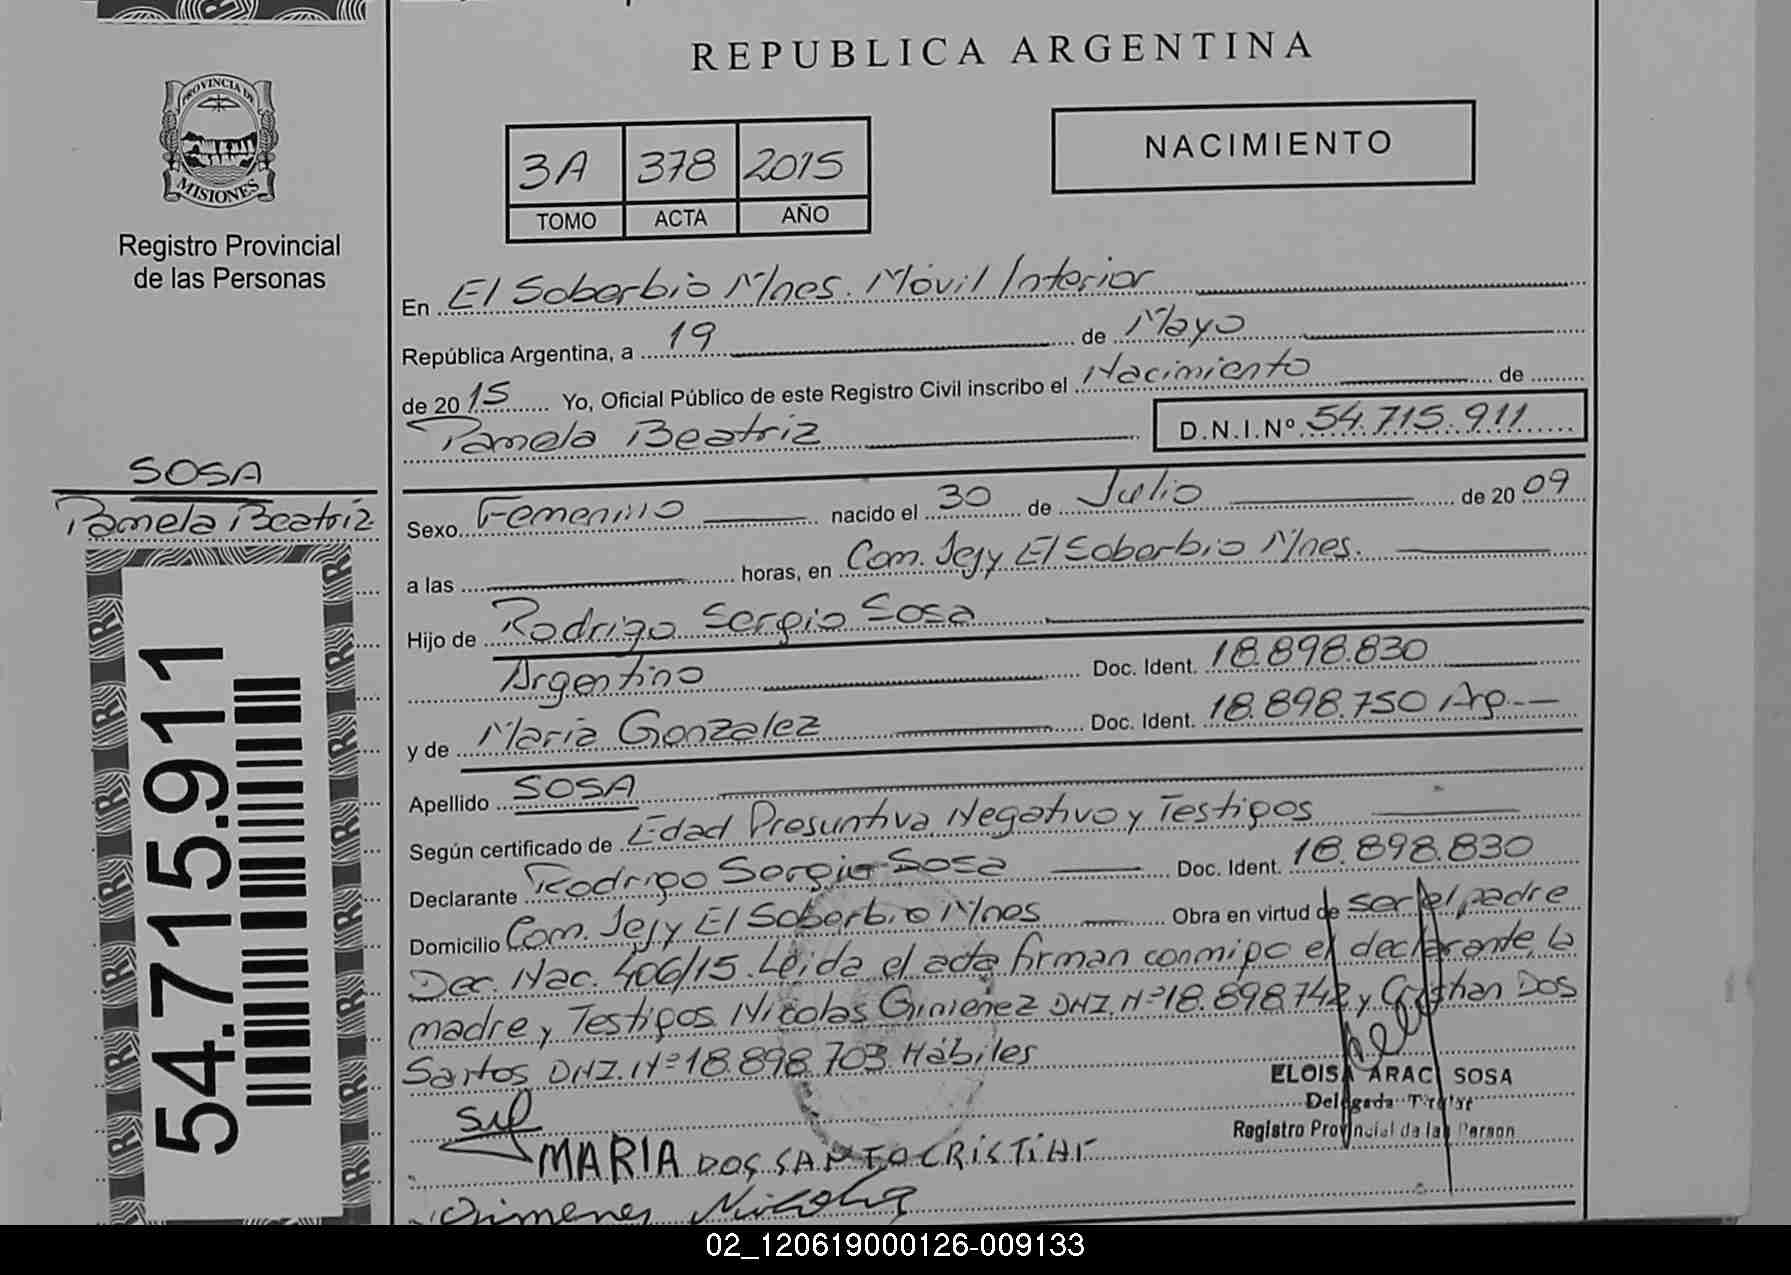 REPUBLICA ARGENTINA
PROVINCIA DE
MISIONES
Registro Provincial
de las Personas
3A 378 2015
TOMO ACTA AÑO
NACIMIENTO
En El Soberbio Mnes. Móvil Interior
República Argentina, a 19 de Mayo
de 2015 Yo, Oficial Público de este Registro Civil inscribo el Nacimiento de
Pamela Beatriz D.N.I.Nº 54.715.911
SOSA
Pamela Beatriz
Sexo Femenino nacido el 30 de Julio de 2009
a las horas, en Com. Jejy El Soberbio Mnes.
Hijo de Rodrigo Sergio Sosa
Argentino Doc. Ident. 18.898.830
y de Maria Gonzalez Doc. Ident. 18.898.750 Arg.
Apellido SOSA
Según certificado de Edad Presuntiva Negativo y Testigos
Declarante Rodrigo Sergio Sosa Doc. Ident. 18.898.830
Domicilio Com. Jejy El Soberbio Mnes Obra en virtud de ser el padre
Dec. Nac. 406/15. Leida el acta firman conmigo el declarante, la
madre y Testigos Nicolas Gimenez DNI. Nº 18.898.742 y Cristhan Dos
Santos DNI. Nº 18.898.703 Hábiles
ELOISA ARACI SOSA
Delegada Titular
Registro Provincial de las Person
MARIA DOS SANTO CRISTIAN
Gimenes Nicolas
54.715.911
02_120619000126-009133